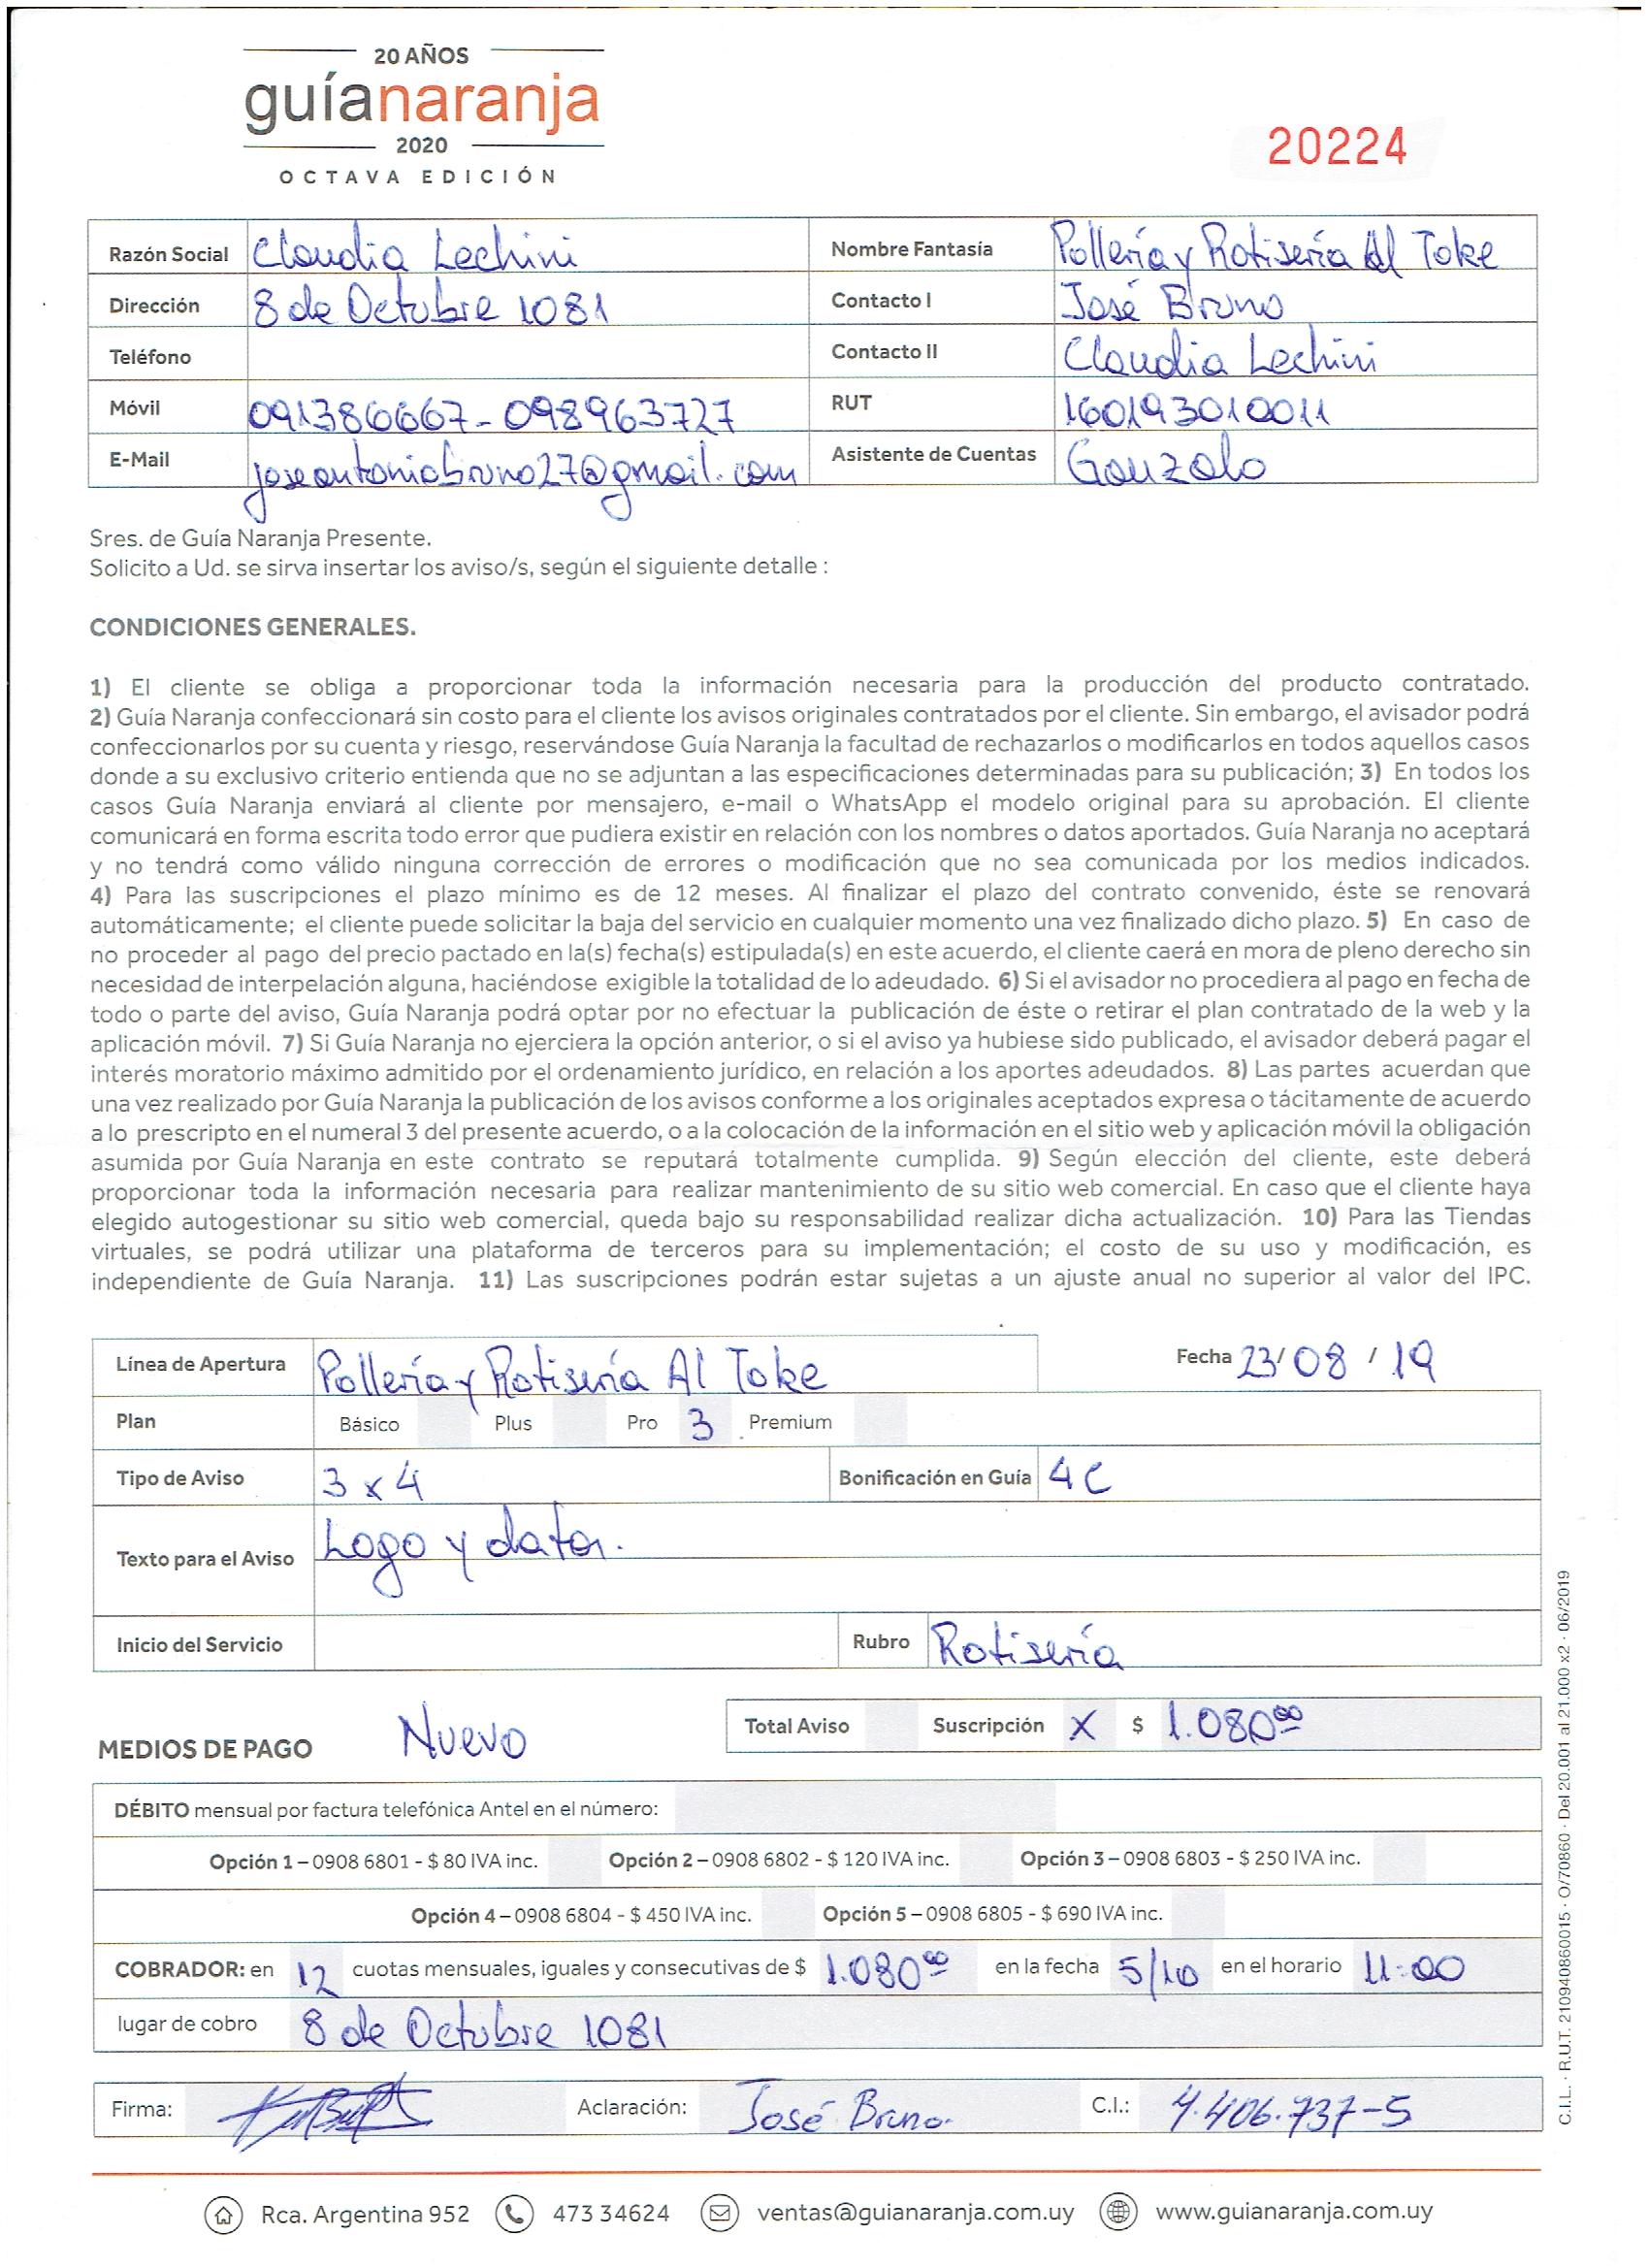 20 AÑOS
guíanaranja
2020
OCTAVA EDICIÓN
20224
Razón Social Claudia Lechini Nombre Fantasía Pollería y Rotisería Al Toke
Dirección 8 de Octubre 1081 Contacto I José Bruno
Teléfono Contacto II Claudia Lechini
Móvil 091386667 - 098963727 RUT 160193010011
E-Mail joseantoniobruno27@gmail.com Asistente de Cuentas Gonzalo
Sres. de Guía Naranja Presente.
Solicito a Ud. se sirva insertar los aviso/s, según el siguiente detalle :
CONDICIONES GENERALES.
1) El cliente se obliga a proporcionar toda la información necesaria para la producción del producto contratado.
2) Guía Naranja confeccionará sin costo para el cliente los avisos originales contratados por el cliente. Sin embargo, el avisador podrá
confeccionarlos por su cuenta y riesgo, reservándose Guía Naranja la facultad de rechazarlos o modificarlos en todos aquellos casos
donde a su exclusivo criterio entienda que no se adjuntan a las especificaciones determinadas para su publicación; 3) En todos los
casos Guía Naranja enviará al cliente por mensajero, e-mail o WhatsApp el modelo original para su aprobación. El cliente
comunicará en forma escrita todo error que pudiera existir en relación con los nombres o datos aportados. Guía Naranja no aceptará
y no tendrá como válido ninguna corrección de errores o modificación que no sea comunicada por los medios indicados.
4) Para las suscripciones el plazo mínimo es de 12 meses. Al finalizar el plazo del contrato convenido, éste se renovará
automáticamente; el cliente puede solicitar la baja del servicio en cualquier momento una vez finalizado dicho plazo. 5) En caso de
no proceder al pago del precio pactado en la(s) fecha(s) estipulada(s) en este acuerdo, el cliente caerá en mora de pleno derecho sin
necesidad de interpelación alguna, haciéndose exigible la totalidad de lo adeudado. 6) Si el avisador no procediera al pago en fecha de
todo o parte del aviso, Guía Naranja podrá optar por no efectuar la publicación de éste o retirar el plan contratado de la web y la
aplicación móvil. 7) Si Guía Naranja no ejerciera la opción anterior, o si el aviso ya hubiese sido publicado, el avisador deberá pagar el
interés moratorio máximo admitido por el ordenamiento jurídico, en relación a los aportes adeudados. 8) Las partes acuerdan que
una vez realizado por Guía Naranja la publicación de los avisos conforme a los originales aceptados expresa o tácitamente de acuerdo
a lo prescripto en el numeral 3 del presente acuerdo, o a la colocación de la información en el sitio web y aplicación móvil la obligación
asumida por Guía Naranja en este contrato se reputará totalmente cumplida. 9) Según elección del cliente, este deberá
proporcionar toda la información necesaria para realizar mantenimiento de su sitio web comercial. En caso que el cliente haya
elegido autogestionar su sitio web comercial, queda bajo su responsabilidad realizar dicha actualización. 10) Para las Tiendas
virtuales, se podrá utilizar una plataforma de terceros para su implementación; el costo de su uso y modificación, es
independiente de Guía Naranja. 11) Las suscripciones podrán estar sujetas a un ajuste anual no superior al valor del IPC.
Línea de Apertura Pollería y Rotisería Al Toke Fecha 23/ 08 / 19
Plan Básico Plus Pro 3 Premium
Tipo de Aviso 3 x 4 Bonificación en Guía 4C
Texto para el Aviso Logo y datos.
Inicio del Servicio Rubro Rotisería
MEDIOS DE PAGO Nuevo Total Aviso Suscripción X $ 1.080⁰⁰
DÉBITO mensual por factura telefónica Antel en el número:
Opción 1 – 0908 6801 - $ 80 IVA inc. Opción 2 – 0908 6802 - $ 120 IVA inc. Opción 3 – 0908 6803 - $ 250 IVA inc.
Opción 4 – 0908 6804 - $ 450 IVA inc. Opción 5 – 0908 6805 - $ 690 IVA inc.
COBRADOR: en 12 cuotas mensuales, iguales y consecutivas de $ 1.080⁰⁰ en la fecha 5/10 en el horario 11:00
lugar de cobro 8 de Octubre 1081
Firma: Aclaración: José Bruno. C.I.: 4.406.737-5
Rca. Argentina 952 473 34624 ventas@guianaranja.com.uy www.guianaranja.com.uy
C.I.L. · R.U.T. 210940860015 · O/70860 · Del 20.001 al 21.000 x2 · 06/2019